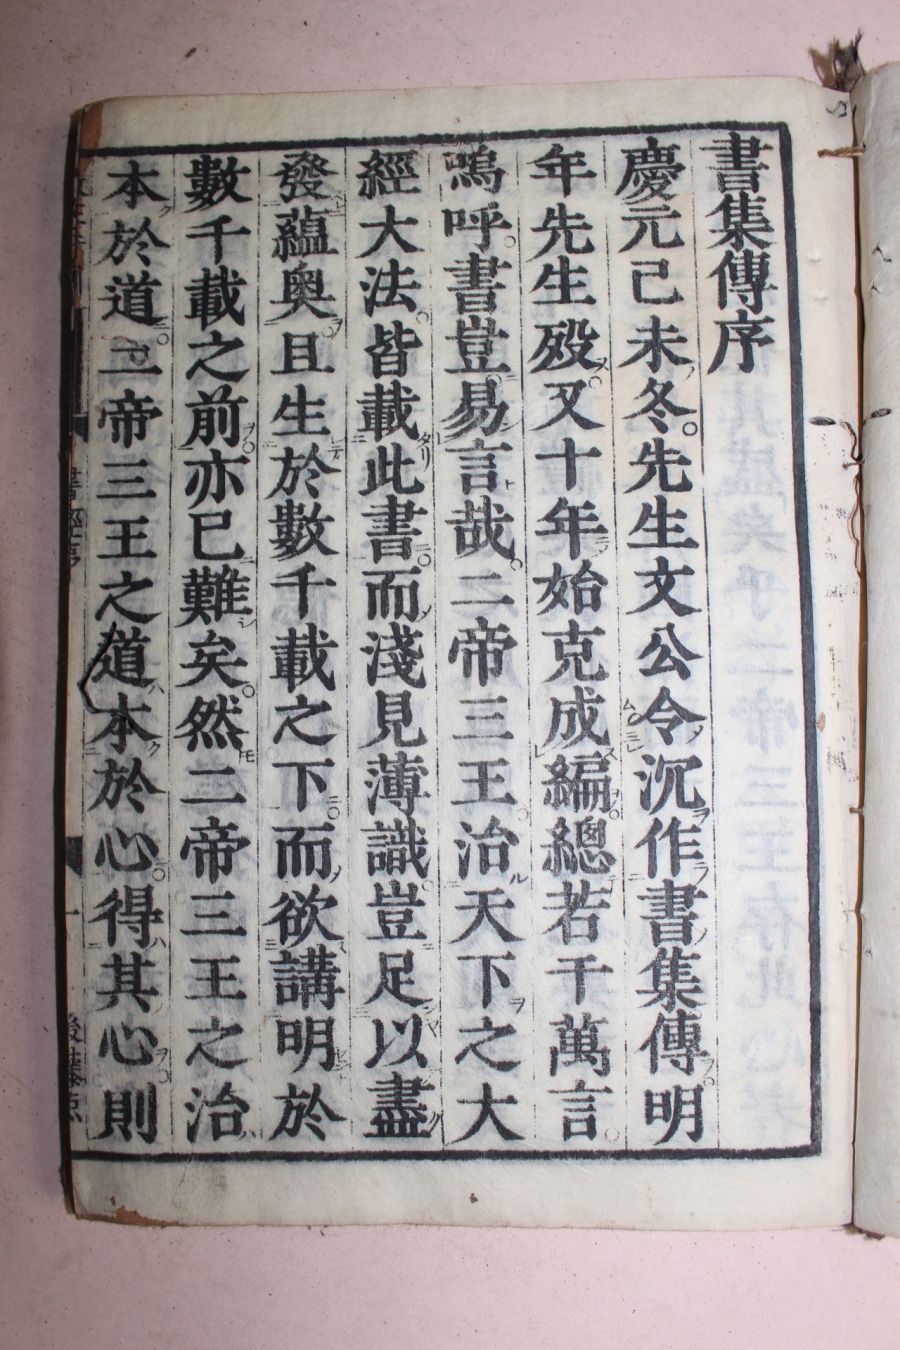 書集傳序
慶元己未冬先生文公令沉作書集傳明
年先生歿又十年始克成編總若干萬言
嗚呼書豈易言哉二帝三王治天下之大
經大法皆載此書而淺見薄識豈足以盡
發蘊奧且生於數千載之下而欲講明於
數千載之前亦已難矣然二帝三王之治
本於道二帝三王之道本於心得其心則
書經序
一
後藤點